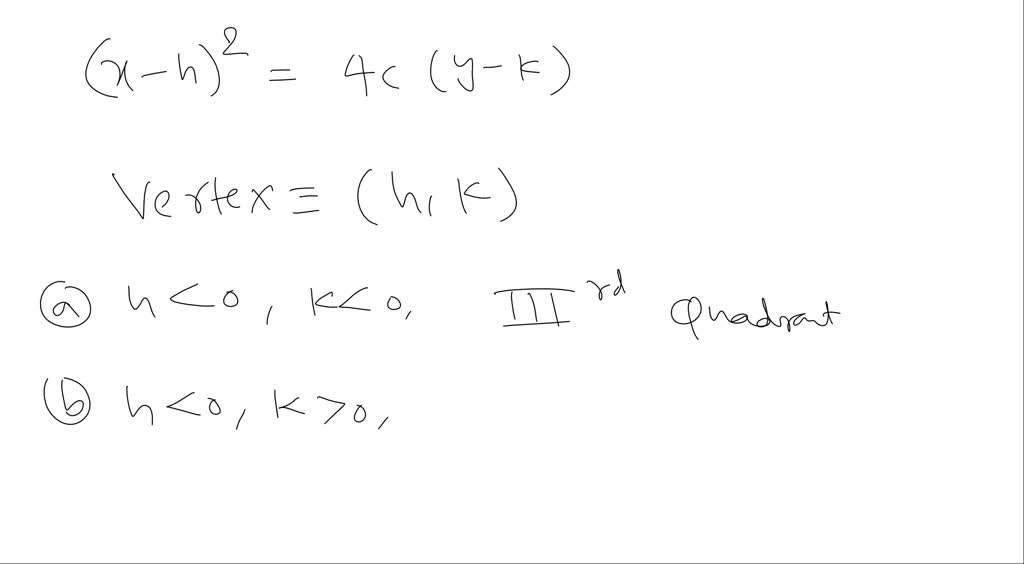 (x-h)² = 4c (y-k)
Vertex ≡ (h, k)
ⓐ h<0, k<0, III rd Quadrant
ⓑ h<0, k>0,